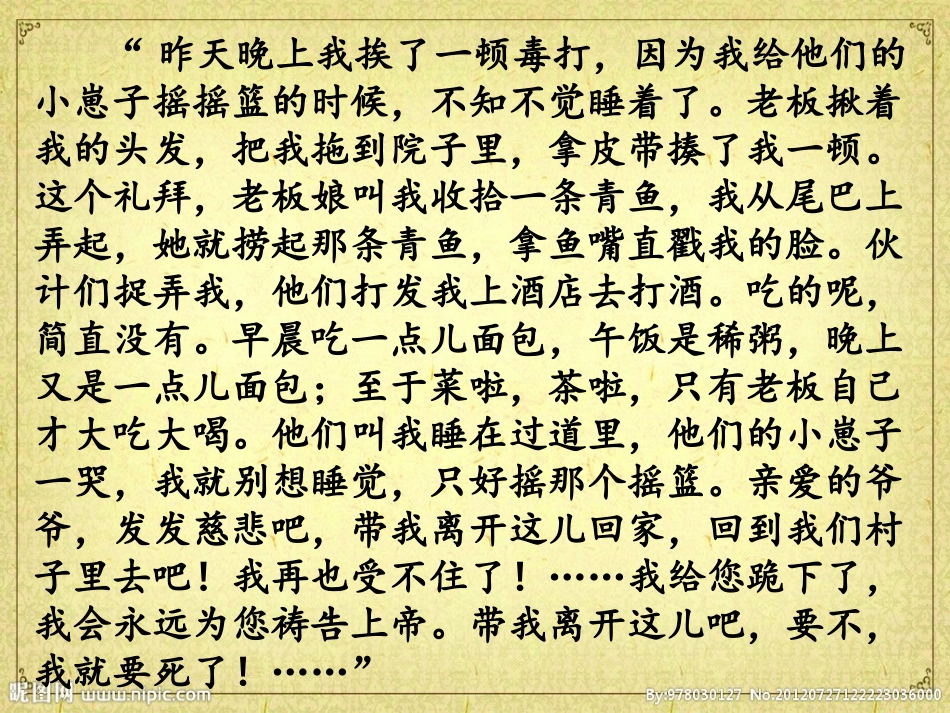 “ 昨天晚上我挨了一顿毒打，因为我给他们的
小崽子摇摇篮的时候，不知不觉睡着了。老板揪着
我的头发，把我拖到院子里，拿皮带揍了我一顿。
这个礼拜，老板娘叫我收拾一条青鱼，我从尾巴上
弄起，她就捞起那条青鱼，拿鱼嘴直戳我的脸。伙
计们捉弄我，他们打发我上酒店去打酒。吃的呢，
简直没有。早晨吃一点儿面包，午饭是稀粥，晚上
又是一点儿面包；至于菜啦，茶啦，只有老板自己
才大吃大喝。他们叫我睡在过道里，他们的小崽子
一哭，我就别想睡觉，只好摇那个摇篮。亲爱的爷
爷，发发慈悲吧，带我离开这儿回家，回到我们村
子里去吧！我再也受不住了！……我给您跪下了，
我会永远为您祷告上帝。带我离开这儿吧，要不，
我就要死了！……”
昵图网 www.nipic.com
By:978030127 No.20120727122223036000